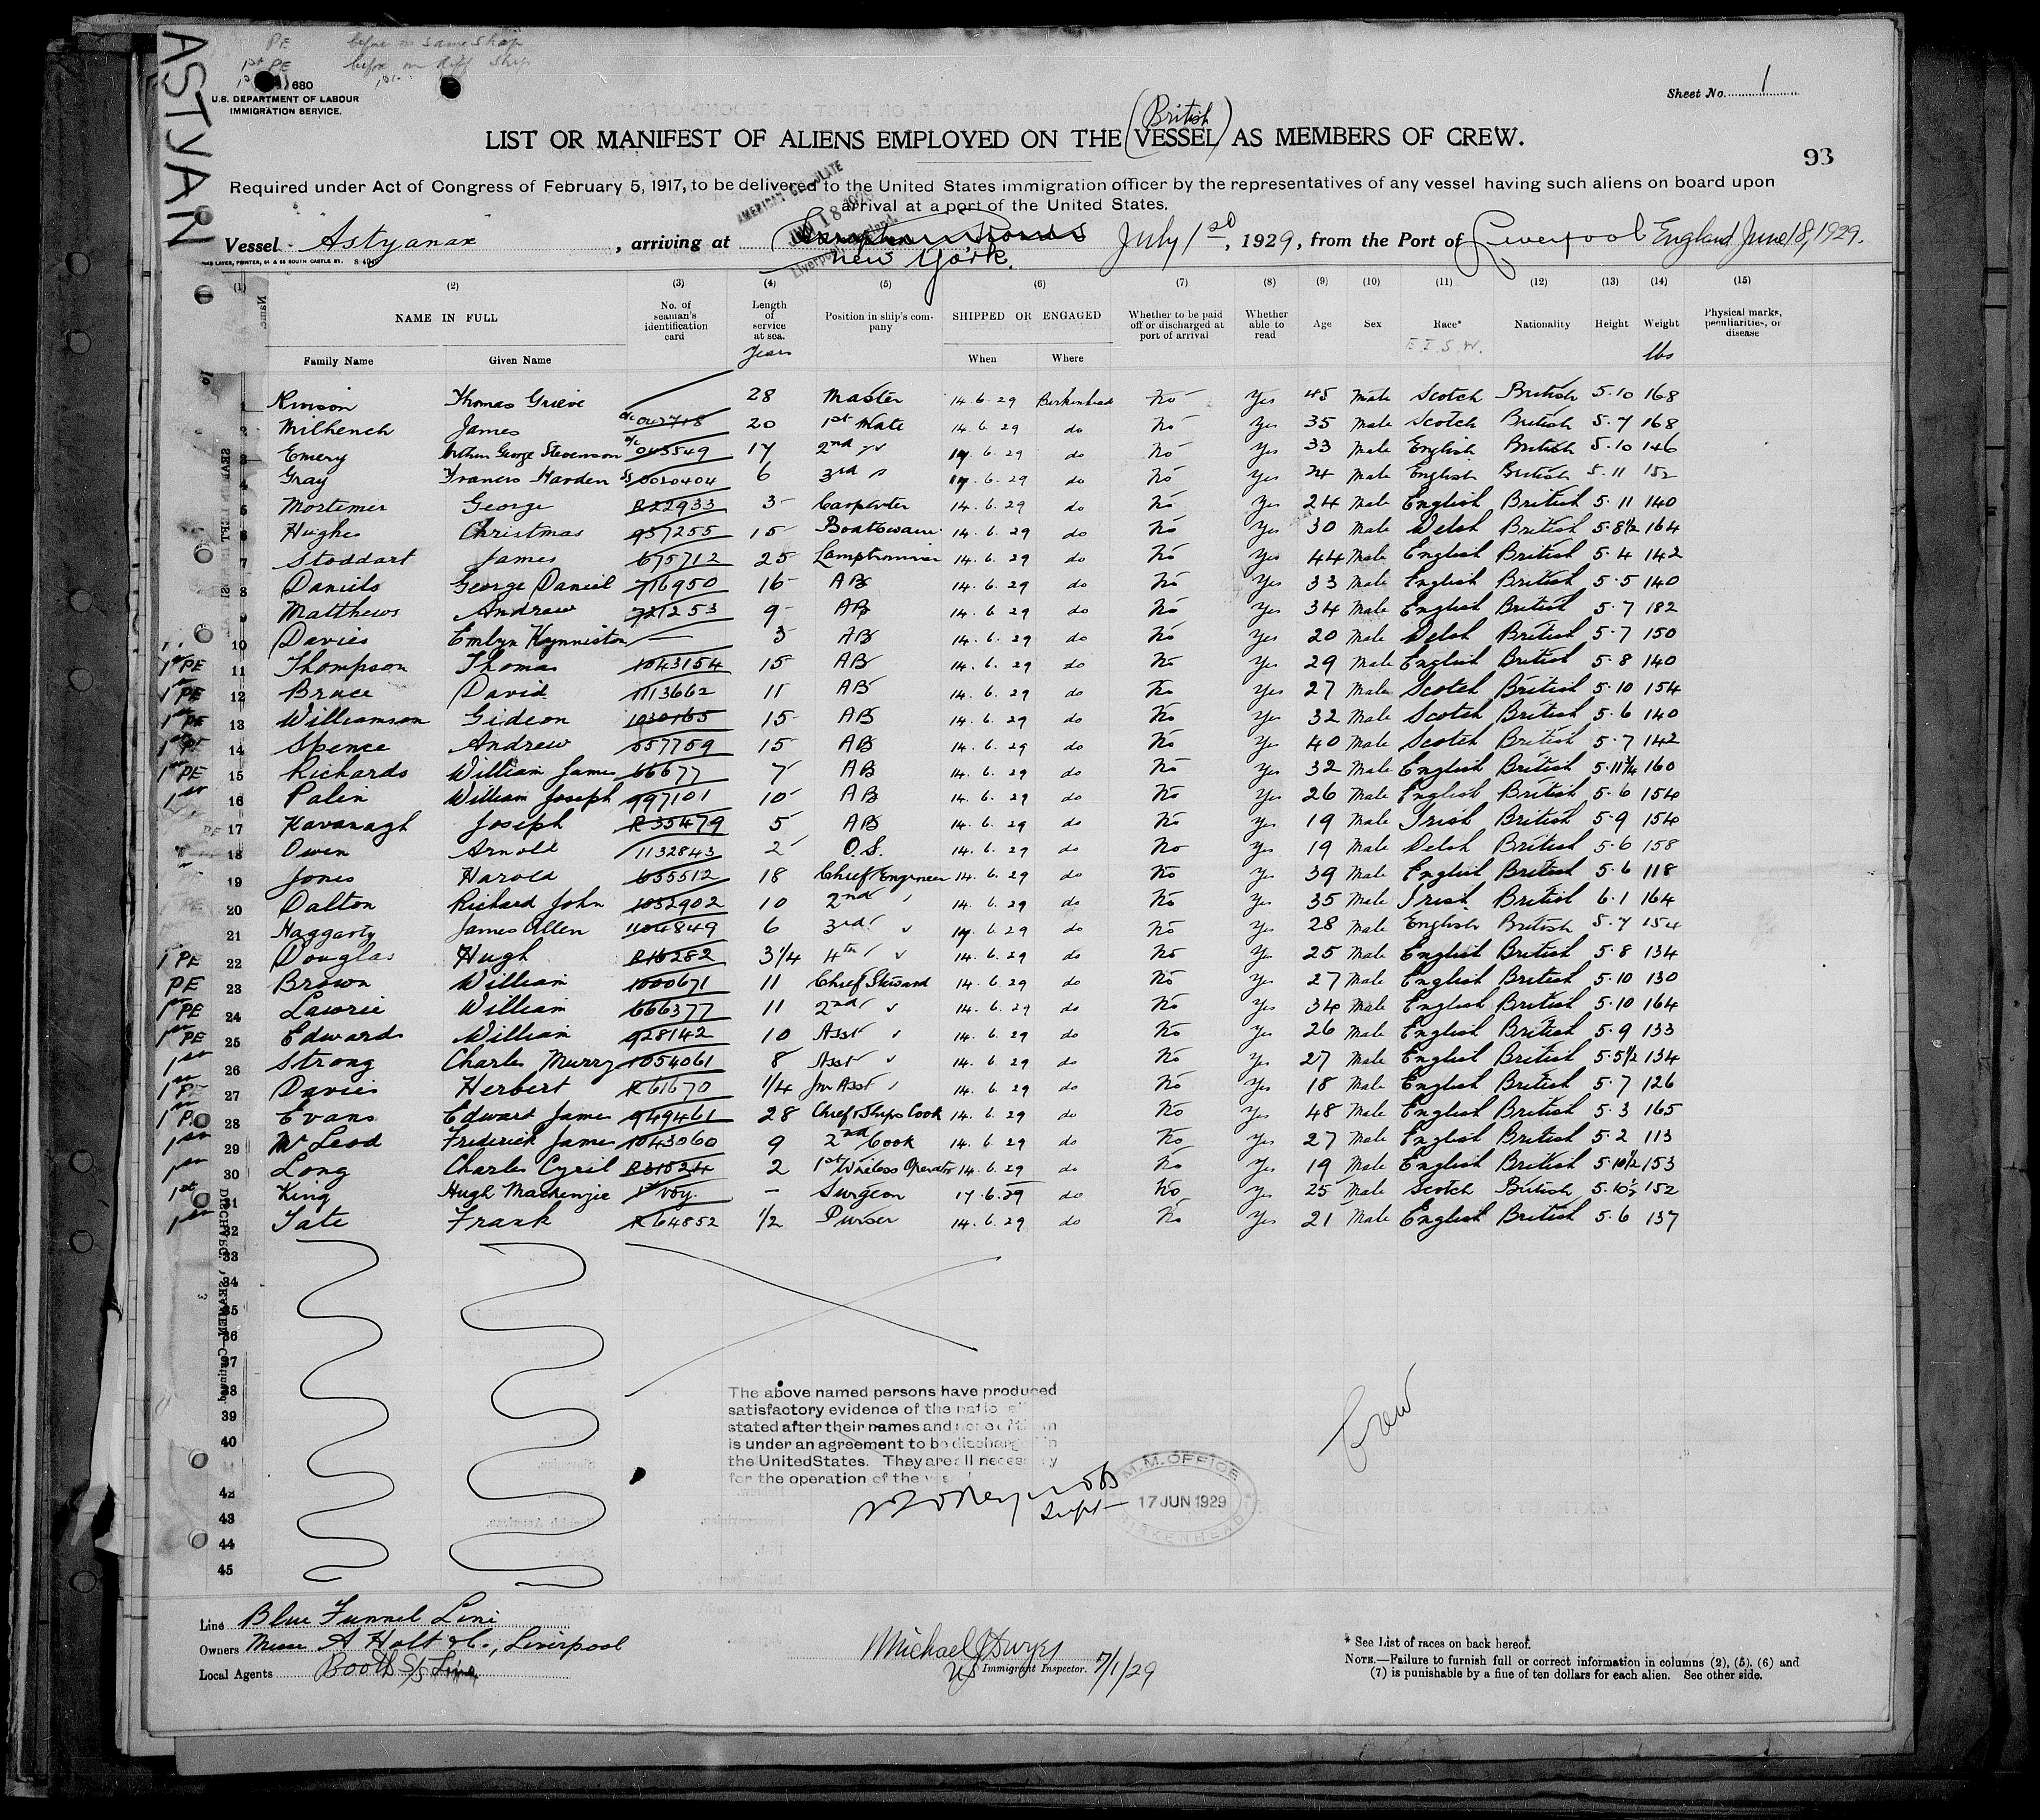 ASTYAN
PE before on same ship
1st PE before on diff ship
680
U.S. DEPARTMENT OF LABOUR
IMMIGRATION SERVICE.
Sheet No. 1
(British)
LIST OR MANIFEST OF ALIENS EMPLOYED ON THE VESSEL AS MEMBERS OF CREW.
93
Required under Act of Congress of February 5, 1917, to be delivered to the United States immigration officer by the representatives of any vessel having such aliens on board upon
arrival at a port of the United States.
AMERICAN CONSULATE
Vessel Astyanax, arriving at New York. July 1st, 1929, from the Port of Liverpool England June 18, 1929.
(1) (2) (3) (4) (5) (6) (7) (8) (9) (10) (11) (12) (13) (14) (15)
NAME IN FULL No. of seaman's identification card Length of service at sea. Position in ship's company SHIPPED OR ENGAGED Whether to be paid off or discharged at port of arrival Whether able to read Age Sex Race* Nationality Height Weight Physical marks, peculiarities, or disease
Family Name Given Name Years When Where E.I.S.W. lbs
1 Thomas Grieve 28 Master 14.6.29 Birkenhead No Yes 45 Male Scotch British 5.10 168
2 Milhench James 20 1st Mate 14.6.29 do No Yes 35 Male Scotch British 5.7 168
3 Emery Arthur George Stevenson 043549 17 2nd 14.6.29 do No Yes 33 Male English British 5.10 146
4 Gray Francis Harden 0020404 6 3rd 14.6.29 do No Yes 24 Male English British 5.11 152
5 Mortimer George R22933 3 Carpenter 14.6.29 do No Yes 24 Male English British 5.11 140
6 Hughes Christmas 957255 15 Boatswain 14.6.29 do No Yes 30 Male Welsh British 5.8½ 164
7 Stoddart James 675712 25 Lamptrimmer 14.6.29 do No Yes 44 Male English British 5.4 142
8 Daniels George Daniel 716950 16 AB 14.6.29 do No Yes 33 Male English British 5.5 140
9 Matthews Andrew 721253 9 AB 14.6.29 do No Yes 34 Male English British 5.7 182
10 Davies Emlyn Kynniston 3 AB 14.6.29 do No Yes 20 Male Welsh British 5.7 150
1st PE 11 Thompson Thomas 1043154 15 AB 14.6.29 do No Yes 29 Male English British 5.8 140
1st PE 12 Bruce David 1113662 11 AB 14.6.29 do No Yes 27 Male Scotch British 5.10 154
1st PE 13 Williamson Gideon 1030165 15 AB 14.6.29 do No Yes 32 Male Scotch British 5.6 140
1st PE 14 Spence Andrew 557759 15 AB 14.6.29 do No Yes 40 Male Scotch British 5.7 142
1st PE 15 Richards William James 66677 7 AB 14.6.29 do No Yes 32 Male English British 5.11¾ 160
1st 16 Palin William Joseph 997101 10 AB 14.6.29 do No Yes 26 Male English British 5.6 154
PE 17 Kavanagh Joseph R35479 5 AB 14.6.29 do No Yes 19 Male Irish British 5.9 154
18 Owen Arnold 1132843 2 O.S. 14.6.29 do No Yes 19 Male Welsh British 5.6 158
19 Jones Harold 655512 18 Chief Engineer 14.6.29 do No Yes 39 Male English British 5.6 118
PE 20 Dalton Richard John 1032902 10 2nd 14.6.29 do No Yes 35 Male Irish British 6.1 164
21 Haggarty James Allen 1104849 6 3rd 14.6.29 do No Yes 28 Male English British 5.7 154
1 PE 22 Douglas Hugh R16282 3¼ 4th 14.6.29 do No Yes 25 Male English British 5.8 134
PE 23 Brown William 1000671 11 Chief Steward 14.6.29 do No Yes 27 Male English British 5.10 130
1st PE 24 Lawrie William 666377 11 2nd 14.6.29 do No Yes 34 Male English British 5.10 164
1st PE 25 Edwards William 928142 10 Asst 14.6.29 do No Yes 26 Male English British 5.9 133
1st 26 Strong Charles Murry 1054061 8 Asst 14.6.29 do No Yes 27 Male English British 5.5½ 134
1st PE 27 Davies Herbert R61670 ¼ Jnr Asst 14.6.29 do No Yes 18 Male English British 5.7 126
1st PE 28 Evans Edward James 949461 28 Chief & Ships Cook 14.6.29 do No Yes 48 Male English British 5.3 165
1st 29 McLeod Frederick James 1043060 9 2nd Cook 14.6.29 do No Yes 27 Male English British 5.2 113
1st 30 Long Charles Cyril R31524 2 1st Wireless Operator 14.6.29 do No Yes 19 Male English British 5.10½ 153
1st 31 King Hugh Mackenzie 1st voy. - Surgeon 17.6.29 do No Yes 25 Male Scotch British 5.10½ 152
1st 32 Tate Frank R64852 ½ Purser 14.6.29 do No Yes 21 Male English British 5.6 137
33
34
35
36
37
38
39
40
42
43
44
45
The above named persons have produced
satisfactory evidence of the
stated after their names and
is under an agreement to be discharged in
the United States. They are all necessary
for the operation of the
Supt
M.M. OFFICE
17 JUN 1929
BIRKENHEAD
Crew
Line Blue Funnel Line
Owners Messrs A Holt & Co., Liverpool
Local Agents Booth S/S Line
Michael O'Dwyer
US Immigrant Inspector. 7/1/29
* See List of races on back hereof.
NOTE.—Failure to furnish full or correct information in columns (2), (5), (6) and
(7) is punishable by a fine of ten dollars for each alien. See other side.